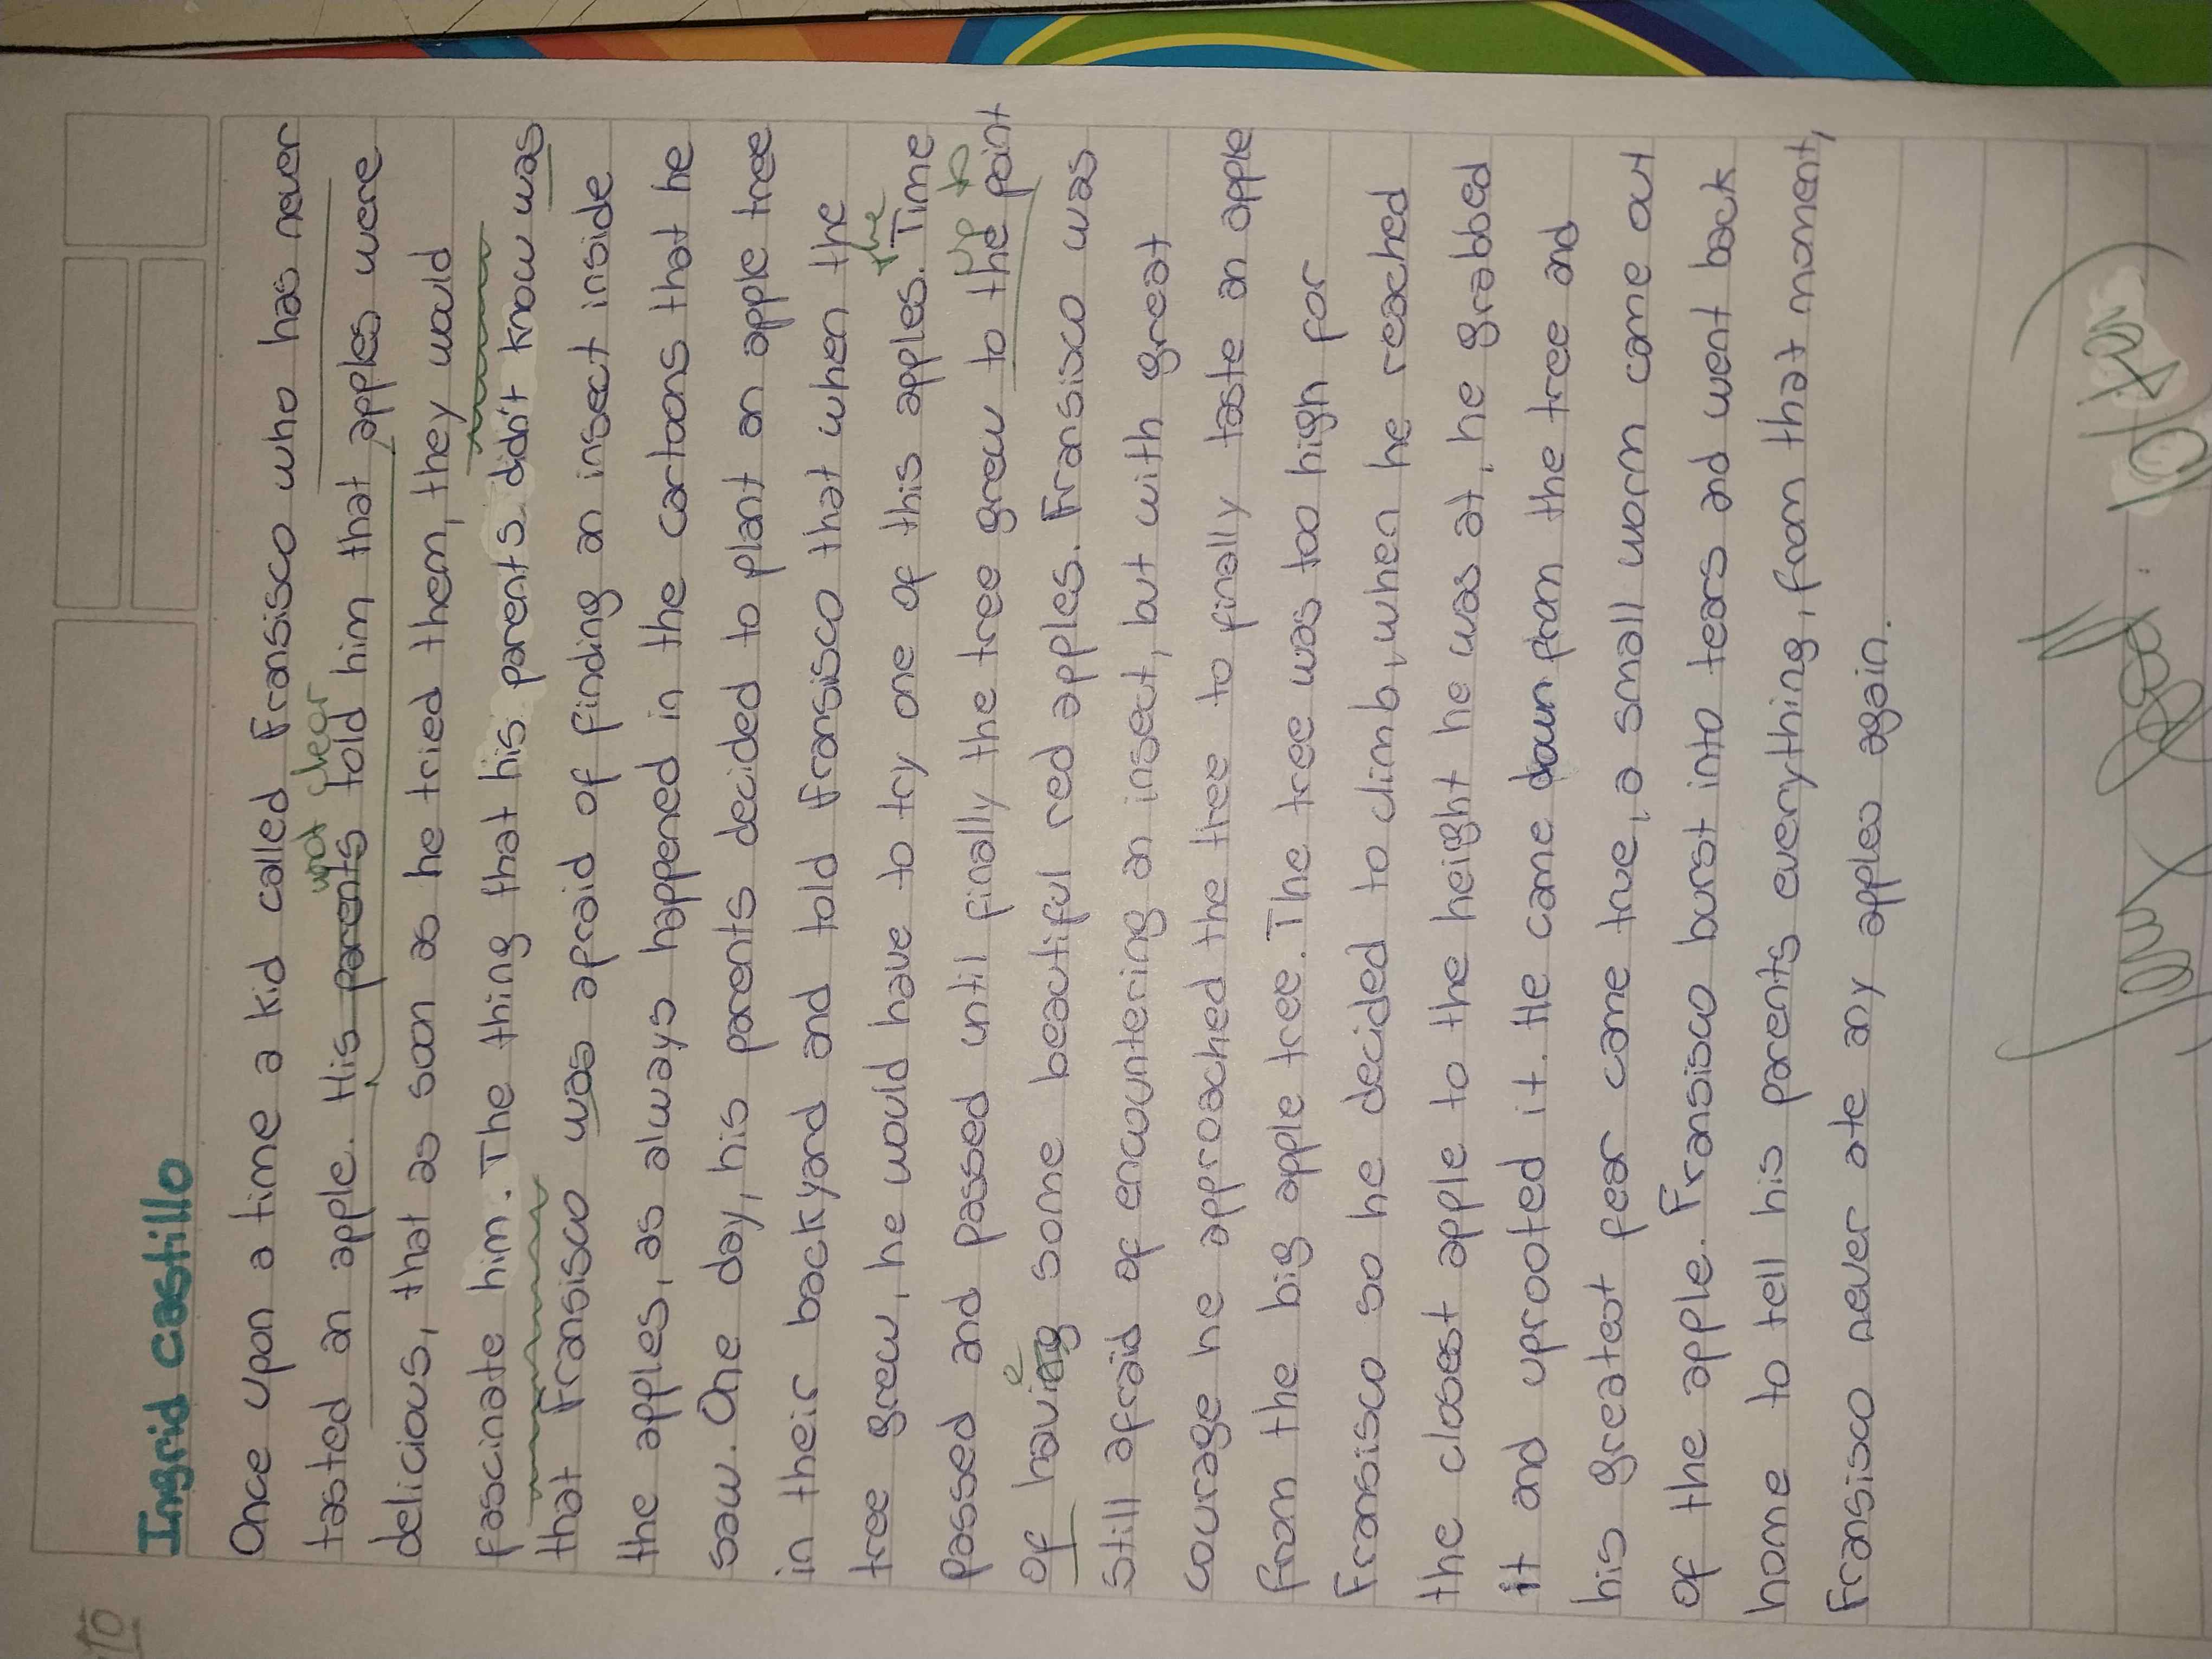 Ingrid castillo
Once upon a time a kid called Fransisco who has never
not clear
tasted an apple. His parents told him that apples were
delicious, that as soon as he tried them, they would
fascinate him. The thing that his parents didn't know was
that Fransisco was afraid of finding an insect inside
the apples, as always happened in the cartoons that he
saw. One day, his parents decided to plant an apple tree
in their backyard and told Fransisco that when the
tree grew, he would have to try one of this apples. Time
the
passed and passed until finally the tree grew to the point
up to
of having some beautiful red apples. Fransisco was
e
still afraid of encountering an insect, but with great
courage he approached the tree to finally taste an apple
from the big apple tree. The tree was too high for
Fransisco so he decided to climb, when he reached
the closest apple to the height he was at, he grabbed
it and uprooted it. He came down from the tree and
his greatest fear came true, a small worm came out
of the apple. Fransisco burst into tears and went back
home to tell his parents everything, from that moment,
Fransisco never ate any apples again.
10